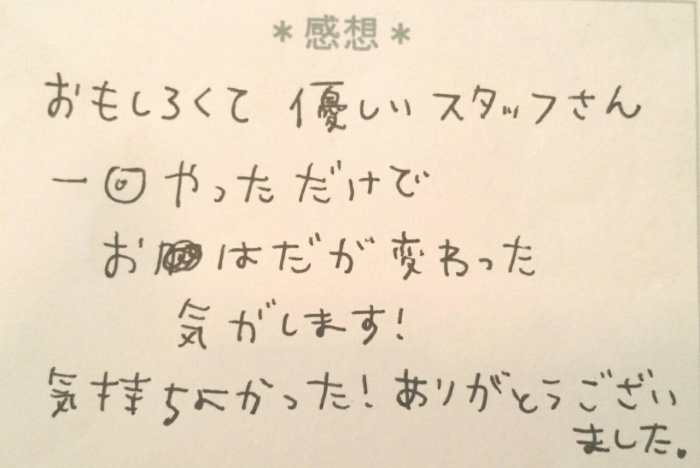 *感想*
おもしろくて 優しい スタッフさん
一回 やっただけで
お はだが 変わった
気がします!
気持ちよかった! ありがとうござい
ました。